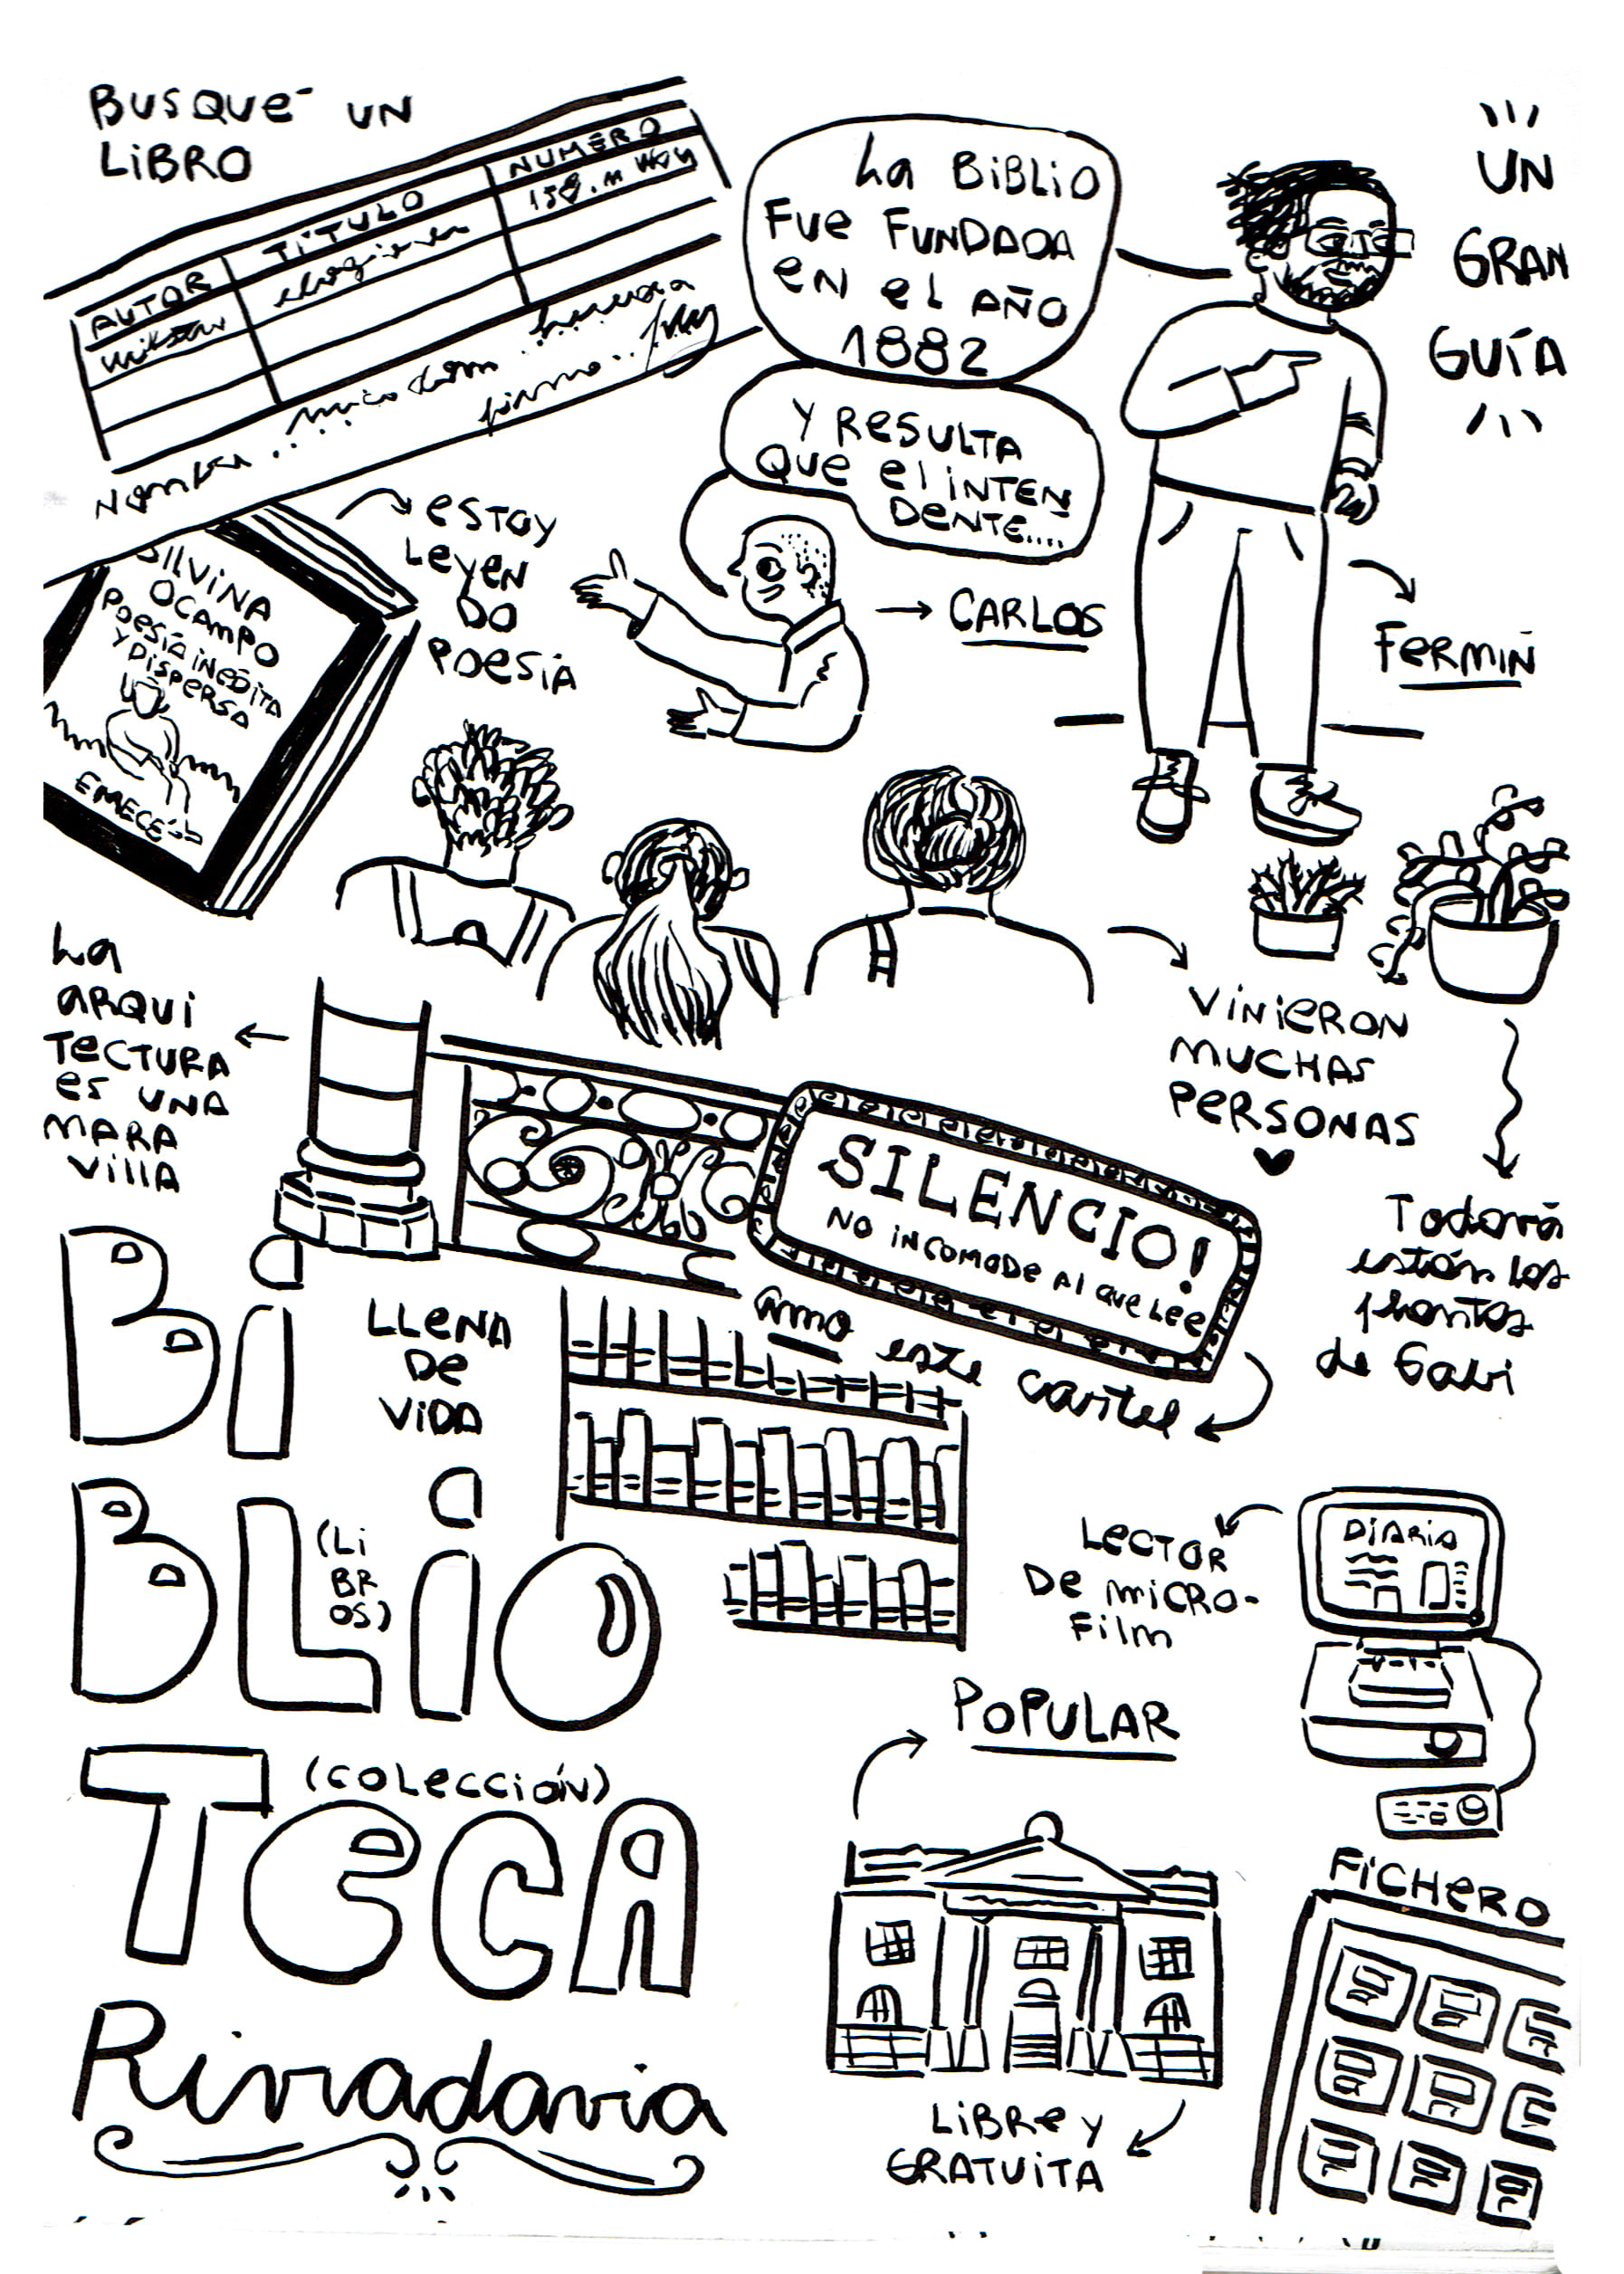 BUSQUÉ UN
LIBRO
AUTOR TÍTULO NUMERO
Nombre
firma
La BiBLiO
Fue FUNDADA
EN el AÑO
1882
Y ReSULTA
Que el iNTEN
DeNTe....
UN
GRAN
GUÍA
eSTOY
LeYeN
DO
POeSíA
SILVINA
OCAMPO
POeSÍA iNÉDiTA
Y DiSPERSA
EMECÉ
CARLOS
FeRMíN
La
ARQUi
TeCTURA
es UNA
MARA
VillA
ViNieRON
MUCHAS
PeRSONAS
SILENCIO!
NO iNCOMODe Al QUe Lee
amo este cartel
Todavía
están las
plantas
de Gabi
Bi
LLeNA
De
ViDA
BLiO
(Li
BR
OS)
LeCTOR
De MiCRO-
FilM
DiARiO
POPULAR
(COLeCCióN)
TeCA
Rivadavia
LiBRe Y
GRATUiTA
FiCHeRO